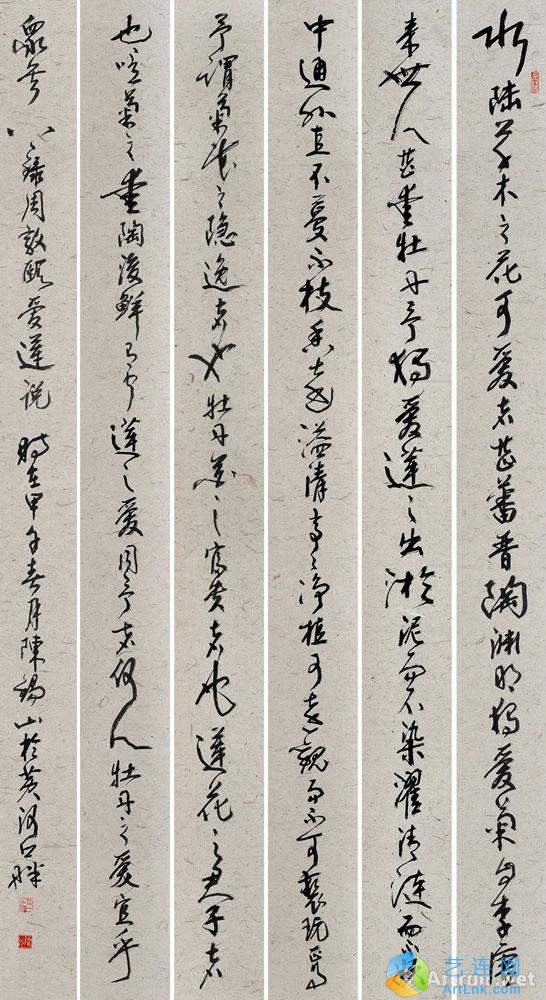 水陸草木之花可愛者甚蕃晋陶渊明獨愛菊自李唐
來世人甚愛牡丹予獨愛蓮之出淤泥而不染濯清漣而不妖
中通外直不蔓不枝香遠溢清亭亭淨植可遠觀而不可褻玩焉
予謂菊花之隱逸者也牡丹花之富貴者也蓮花之君子者
也噫菊之愛陶後鮮有聞蓮之愛同予者何人牡丹之愛宜乎
眾矣 錄周敦頤愛蓮說 時在甲午春月陳錫山於黃河口畔
艺连网
ArtLnk.com
Artron.Net